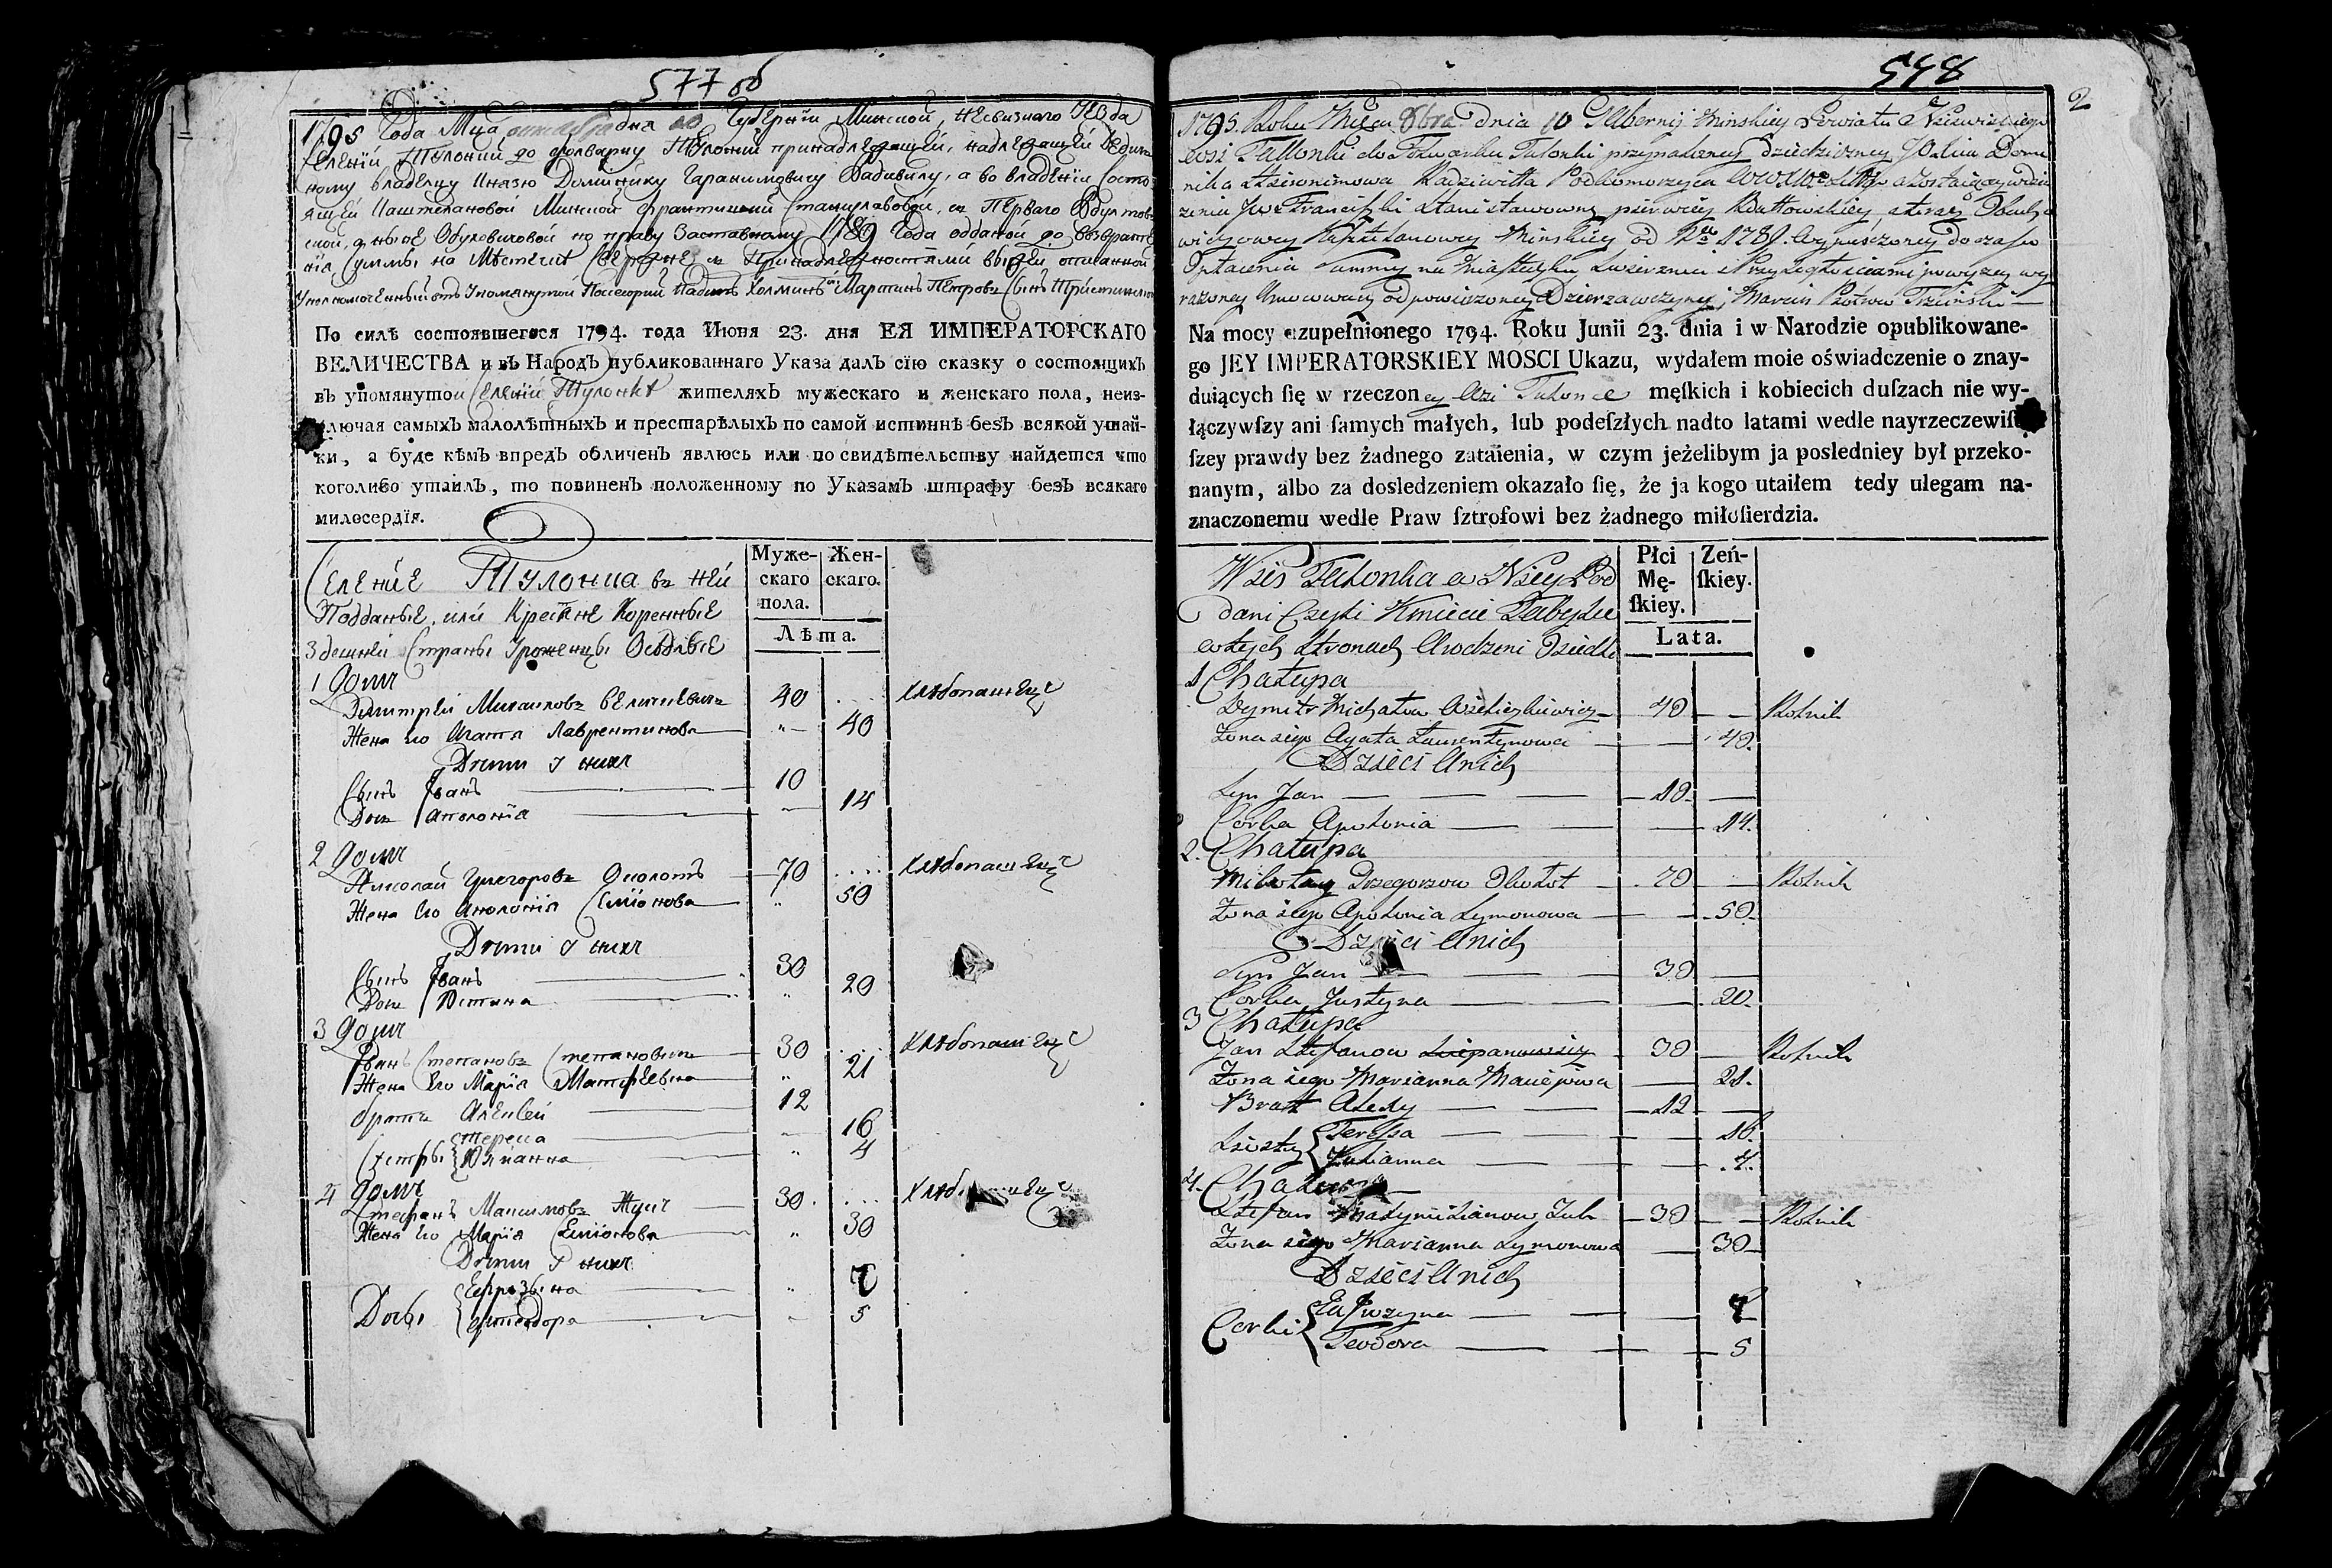 577 об
1795 Года Мца октября дня 10 Губернïи Минской, Несвизкаго Уезда
Селенïи Тулонки до фолварку Тулонки принадлежащей, надлежащей
ному владелцу Князю Доминику Гаранимовичу Радивилу, а во владенïи состо-
ящей Каштеляновой Минской Францишки Станиславовой, съ Перваго
а ныне Обуховичовой по праву Заставному 1789 Года отданой до возврате-
нïя Суммы на Местечке Свержне съ Принадлежностями выжей описанной
Уполномоченный отъ Упомянутой Мартинъ Петровъ Сынъ
По силѣ состоявшегося 1794. года Июня 23. дня ЕЯ ИМПЕРАТОРСКАГО
ВЕЛИЧЕСТВА и въ Народъ публикованнаго Указа далъ сïю сказку о состоящихъ
въ упомянутой Селенïи Тулонке жителяхъ мужескаго и женскаго пола, неиз-
ключая самыхъ малолѣтныхъ и престарѣлыхъ по самой истиннѣ безъ всякой утай-
ки, а буде кѣмъ впредь обличенъ явлюсь или по свидѣтельству найдется что
коголибо утаилъ, то повиненъ положенному по Указамъ штрафу безъ всякаго
милосердïя.
Селенïе Тулонка въ ней
Подданые, или Крестяне Коренные
Здешней Страны Уроженцы Оседлые
Муже-
скаго
пола.
Жен-
скаго.
Лѣта.
1 Домъ
Дмитрей Михаиловъ 40 .... хлебопашецъ
Жена его Агатя Лаврентинова 40
Дети у нихъ
Сынъ Иванъ 10
Дочь Аполонïа 14
2 Домъ
Николай Григоровъ Околотъ 70 .... хлебопашецъ
Жена его Аполонïя Семïонова 50
Дети у нихъ
Сынъ Иванъ 30
Дочь Юстина 20
3 Домъ
Иванъ Степановъ Степановичъ 30 .... хлебопашецъ
Жена его Марïя Матфеевна 21
братъ Алексей 12
Сестры { Тереса 16
Юлïанна 4
4 Домъ
Стефанъ Максимовъ Жукъ 30 .... хлебопашецъ
Жена его Марïя Семïонова 30
Дети у нихъ
Дочьи { Ефрозына 7
Феодора 5
578
2
1795. Roku Mięca 8bra dnia 10 Gubernij Minskiey Powiatu Nieswizkiego
Wsi Tulonki do Folwarku Tulonki przynależney dziedziczney JO Xcia Domi-
nika Hieronimowa Radziwiłła Podkomorzyca
JW Franciszki Stanisławowny pierwiey a teraz Obuch-
wiczowey Kasztelanowey Minskiey od Rku 1789. wypuszczoney do czasu
Opłacenia Summy na Miasteczku Swierzniu z Przyległościami powyżey wy
rażoney Umocowany od powiedzoney Dzierżawczyny Marcin Piotrow
Na mocy uzupełnionego 1794. Roku Junii 23. dnia i w Narodzie opublikowane-
go JEY IMPERATORSKIEY MOSCI Ukazu, wydałem moie oświadczenie o znay-
duiących ſię w rzeczoney Wsi Tulonce męſkich i kobiecich duſzach nie wy-
łączywſzy ani ſamych małych, lub podeſzłych nadto latami wedle nayrzeczewiſt-
ſzey prawdy bez żadnego zataienia, w czym jeżelibym ja posledniey był przeko-
nanym, albo za dosledzeniem okazało ſię, że ja kogo utaiłem tedy ulegam na-
znaczonemu wedle Praw ſztrofowi bez żadnego miłoſierdzia.
Wieś Tulonka w Niey Pod
dani Czyli Kmiecie Tubylce
w tych Stronach Urodzeni Osiedli
Płci
Mę-
ſkiey.
Zeń-
ſkiey.
Lata.
1 Chałupa
Dymitr Michałow 40 Rolnik
Zona iego Agata Laurentynowa 40
Dzieci Unich
Syn Jan 10
Corka Apolonia 14
2. Chałupa
Mikołay Grzegorzow Okołot 70 Rolnik
Zona iego Apolonia Symonowa 50
Dzieci Unich
Syn Jan 30
Corka Justyna 20
3 Chałupa
Jan Stefanow Sciepanowicz 30 Rolnik
Zona iego Marianna Maciejowa 21
Bratt Alexy 12
Siostry { Teressa 16
Julianna 4
4. Chałupa
Stefan Maxymilianow Żuk 30 Rolnik
Zona iego Marianna Symonowa 30
Dzieci Unich
Corki { Eufrozyna 7
Teodora 5